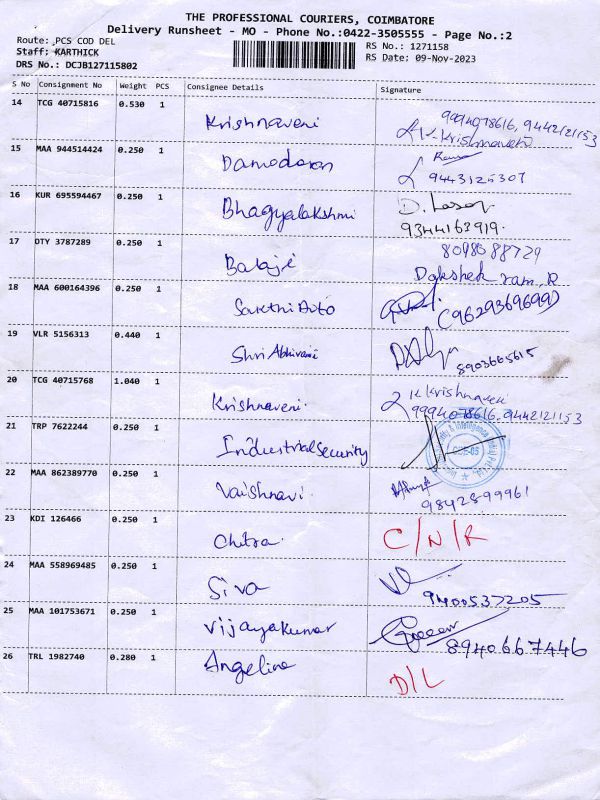 THE PROFESSIONAL COURIERS, COIMBATORE
Delivery Runsheet - MO - Phone No.:0422-3505555 - Page No.:2
Route: PCS COD DEL RS No.: 1271158
Staff: KARTHICK RS Date: 09-Nov-2023
DRS No.: DCJB127115802
S No Consignment No Weight PCS Consignee Details Signature
14 TCG 40715816 0.530 1 Krishnaveni 9994078616, 9442121153
K. Krishnaveni
15 MAA 944514424 0.250 1 Damodaran
9443125307
16 KUR 695594467 0.250 1 Bhagyalakshmi
9344163919.
17 DTY 3787289 0.250 1 Balaji 8098088729
Dakshek ram. R
18 MAA 600164396 0.250 1 Sakthi Auto (9629369699)
19 VLR 5156313 0.440 1 Shri Abhirami 8903665615
20 TCG 40715768 1.040 1 Krishnaveni. K Krishnaveni
9994078616. 9442121153
21 TRP 7622244 0.250 1 Industrial Security CBE-05
22 MAA 862389770 0.250 1 Vaishnavi. 9842899961
23 KDI 126466 0.250 1 Chitra. C/N/R
24 MAA 558969485 0.250 1 Siva 9400537205
25 MAA 101753671 0.250 1 Vijayakumar 8940667446
26 TRL 1982740 0.280 1 Angeline D/L